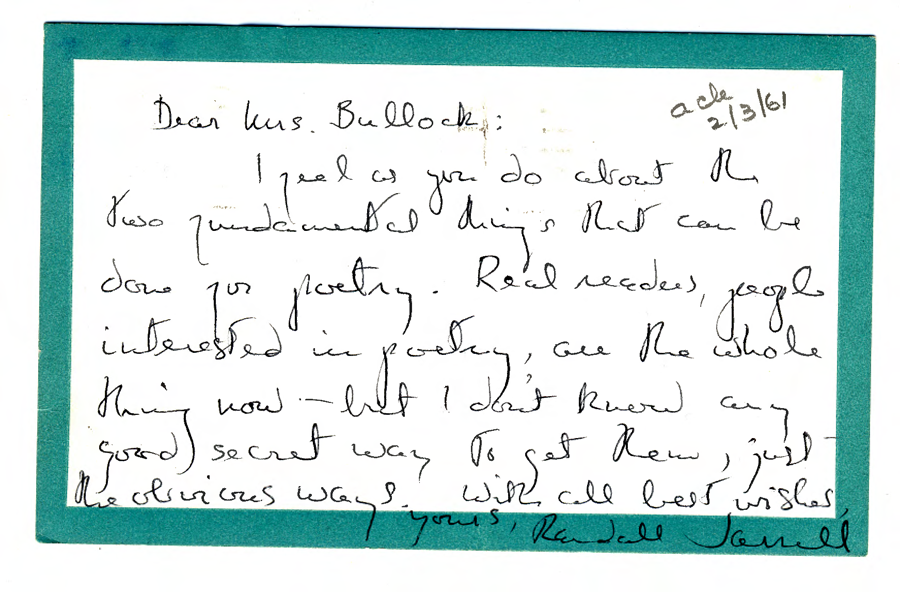 ack
2/3/61
Dear Mrs. Bullock:
I feel as you do about the
two fundamental things that can be
done for poetry. Real readers, people
interested in poetry, are the whole
thing now – but I don't know any
good secret way to get them, just
the obvious ways. With all best wishes,
yours, Randall Jarrell